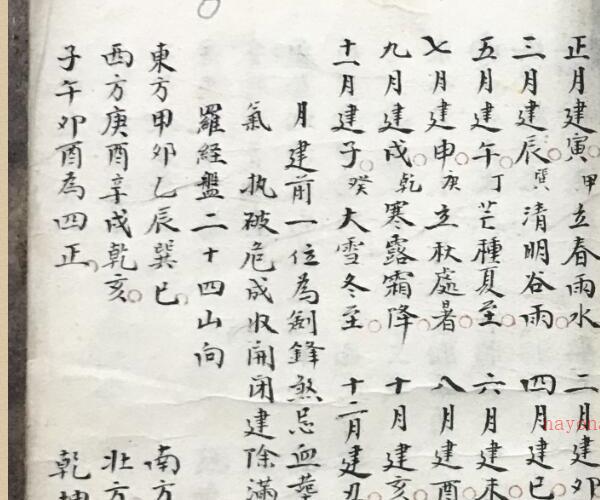 正月建寅甲立春雨水 二月建卯
三月建辰巽清明谷雨 四月建巳
五月建午丁芒種夏至 六月建未
七月建申庚立秋處暑 八月建酉
九月建戌乾寒露霜降 十月建亥
十一月建子癸大雪冬至 十二月建丑
月建前一位為劍鋒煞忌血葬
氣 执破危成收開闭建除滿
羅経盤二十四山向
東方甲卯乙辰巽巳 南方
西方庚酉辛戌乾亥 北方
子午卯酉為四正 乾坤